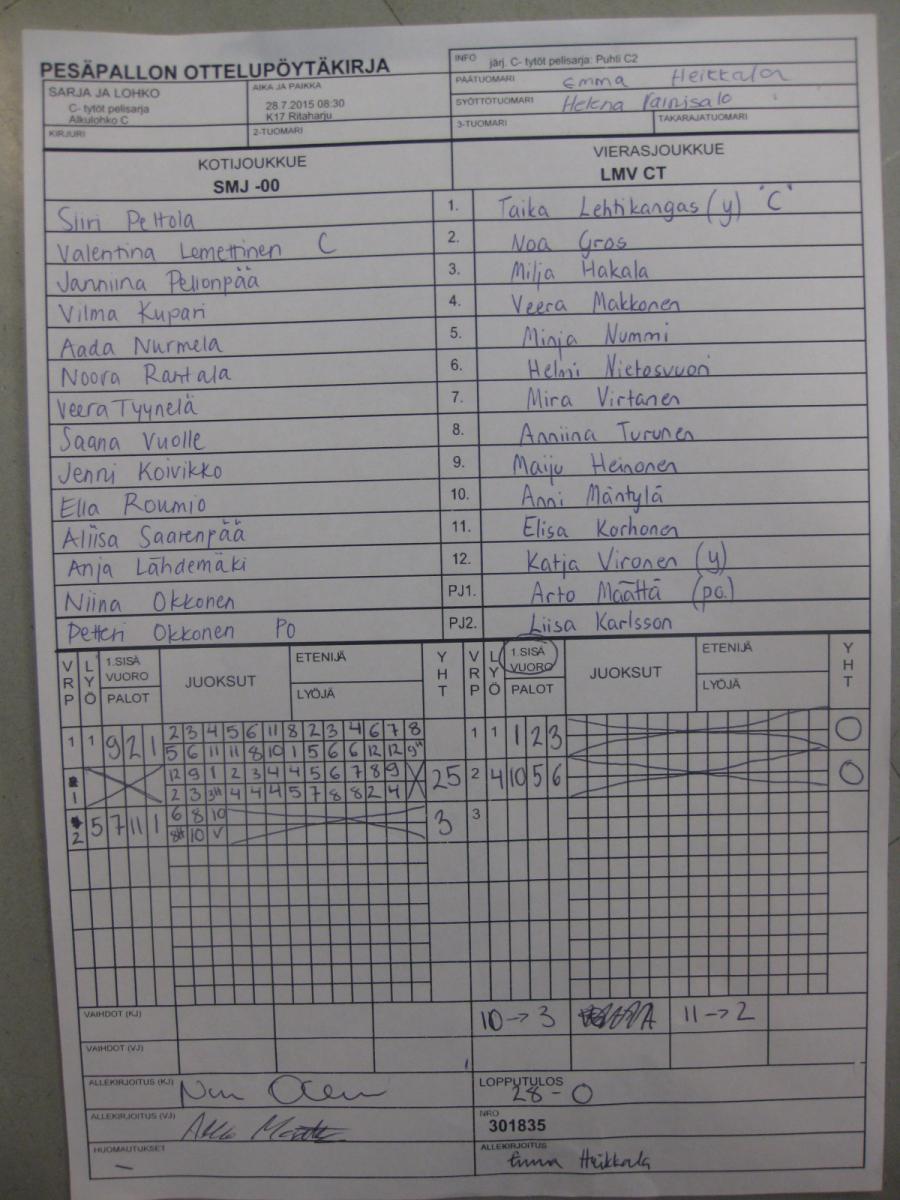 PESÄPALLON OTTELUPÖYTÄKIRJA
INFO järj. C- tytöt pelisarja: Puhti C2
SARJA JA LOHKO
C- tytöt pelisarja
Alkulohko C
AIKA JA PAIKKA
28.7.2015 08:30
K17 Ritaharju
PÄÄTUOMARI Emma Heikkala
SYÖTTÖTUOMARI Helena
KIRJURI
2-TUOMARI
3-TUOMARI
TAKARAJATUOMARI
KOTIJOUKKUE
SMJ -00
VIERASJOUKKUE
LMV CT
Siiri Peltola 1. Taika Lehtikangas (y) "C"
Valentina Lemettinen C 2. Noa Gros
Janniina Pelionpää 3. Milja Hakala
Vilma Kupari 4. Veera Makkonen
Aada Nurmela 5. Minja Nummi
Noora Rantala 6. Helmi Nietosvuori
Veera Tyynelä 7. Mira Virtanen
Saana Vuolle 8. Anniina Turunen
Jenni Koivikko 9. Maiju Heinonen
Ella Roumio 10. Anni Mäntylä
Aliisa Saarenpää 11. Elisa Korhonen
Anja Lähdemäki 12. Katja Vironen (y)
Niina Okkonen PJ1. Arto Määttä (po.)
Petteri Okkonen PO PJ2. Liisa Karlsson
VRP LYÖ 1.SISÄ VUORO PALOT JUOKSUT ETENIJÄ LYÖJÄ YHT VRP LYÖ 1.SISÄ VUORO PALOT JUOKSUT ETENIJÄ LYÖJÄ YHT
1 1 9 2 1 2 3 4 5 6 11 8 2 3 4 6 7 8 1 1 1 2 3 0
5 6 11 11 8 10 1 5 6 6 12 12 9"
1 12 9 1 2 3 4 4 5 6 7 8 9 25 2 4 10 5 6 0
2 3 3" 4 4 4 5 7 8 8 2 4
2 5 7 11 1 6 8 10 3 3
8" 10 V
VAIHDOT (KJ) 10 → 3 11 → 2
VAIHDOT (VJ)
ALLEKIRJOITUS (KJ)
LOPPUTULOS
28 - 0
ALLEKIRJOITUS (VJ)
NRO
301835
HUOMAUTUKSET
–
ALLEKIRJOITUS
Emma Heikkala